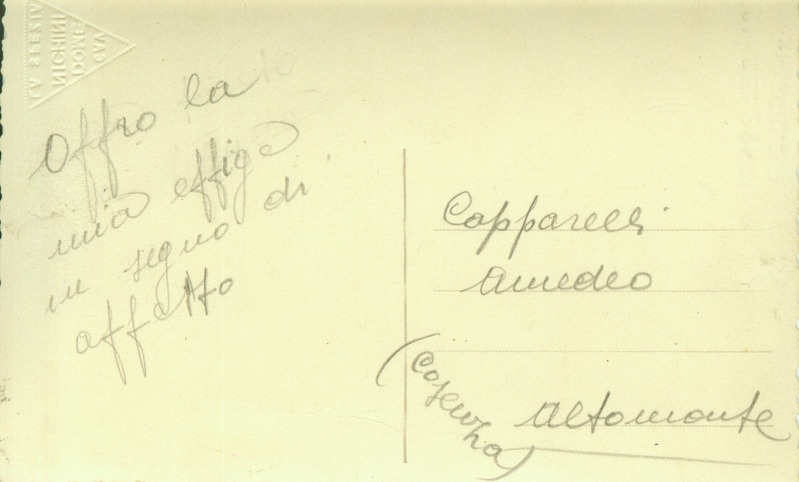 LA SPEZIA
NICHINI
DOME
CAV
Offro la
mia effige
in segno di
affetto
Capparelli
Amedeo
Altomonte
(Cosenza)